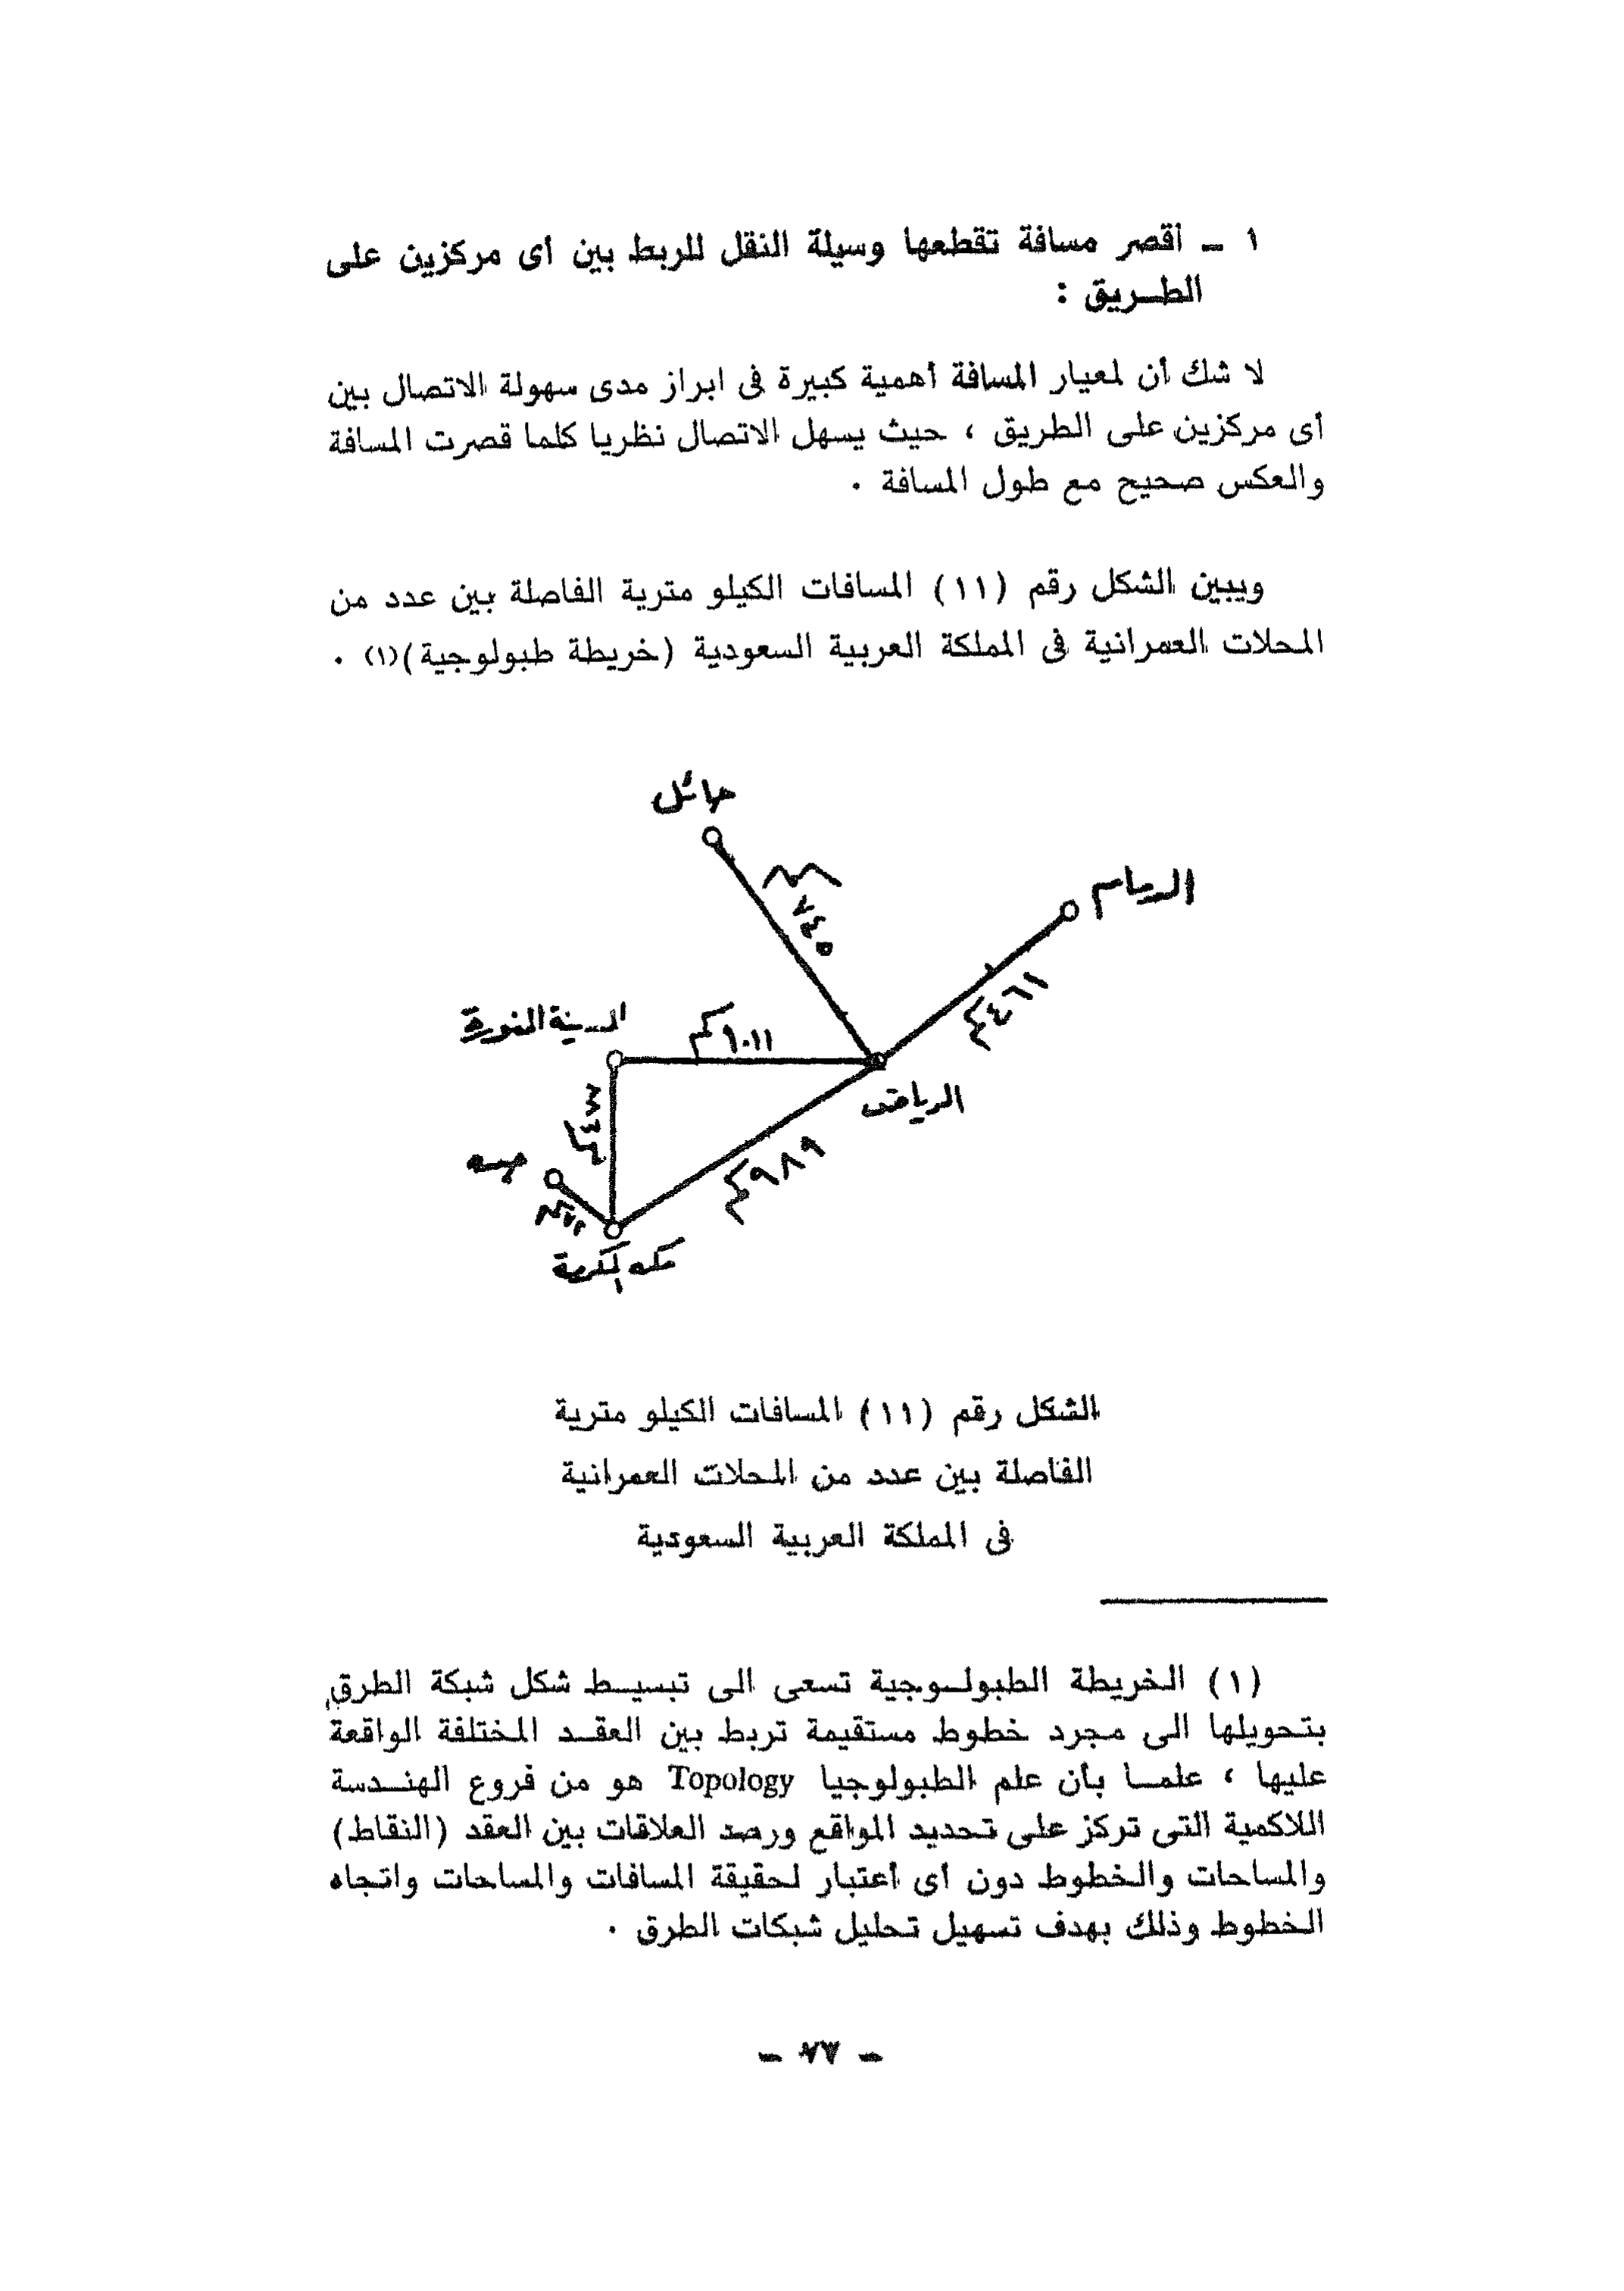 ١ ــ أقصر مسافة تقطعها وسيلة النقل للربط بين أى مركزين على
الطــريق :
لا شك أن لمعيار المسافة أهمية كبيرة فى ابراز مدى سهولة الاتصال بين
أى مركزين على الطريق ، حيث يسهل الاتصال نظريا كلما قصرت المسافة
والعكس صحيح مع طول المسافة .
ويبين الشكل رقم (١١) المسافات الكيلو مترية الفاصلة بين عدد من
المحلات العمرانية فى المملكة العربية السعودية (خريطة طبولوجية)(١) .
حائل
الدمام
٧٤٥ كم
٤٦١ كم
المدينة المنورة
١٠١١ كم
الرياض
٤٧٧ كم
٩٨٩ كم
جده
٧٢ كم
مكه المكرمة
الشكل رقم (١١) المسافات الكيلو مترية
الفاصلة بين عدد من المحلات العمرانية
فى المملكة العربية السعودية
(١) الخريطة الطبولــوجية تسعى الى تبسيــط شكل شبكة الطرق
بتحويلها الى مجرد خطوط مستقيمة تربط بين العقــد المختلفة الواقعة
عليها ، علمــا بأن علم الطبولوجيا Topology هو من فروع الهنــدسة
اللاكمية التى تركز على تحديد المواقع ورصد العلاقات بين العقد (النقاط)
والمساحات والخطوط دون أى أعتبار لحقيقة المسافات والمساحات واتجاه
الخطوط وذلك بهدف تسهيل تحليل شبكات الطرق .
— ٧٧ —